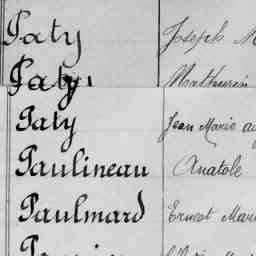 Paty Joseph M
Paty Mathurin
Paty Jean Marie au
Paulineau Anatole
Paulmard Ernest Mari